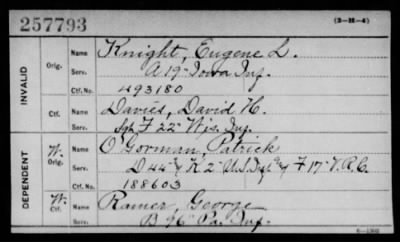 257793
(3-M-4)
INVALID
Orig.
Name Knight, Eugene L.
Serv. A 19" Iowa Inf.
Ctf. No. 493180
Ctf.
Name Davies, David H.
Serv. F 22" Wis. Inf.
DEPENDENT
W. Orig.
Name O'Gorman, Patrick
Serv. D 44" & K 2" Inf & F 17" V.R.C.
Ctf. No. 188603
W. Ctf.
Name Ramer, George
B Pa. Inf.